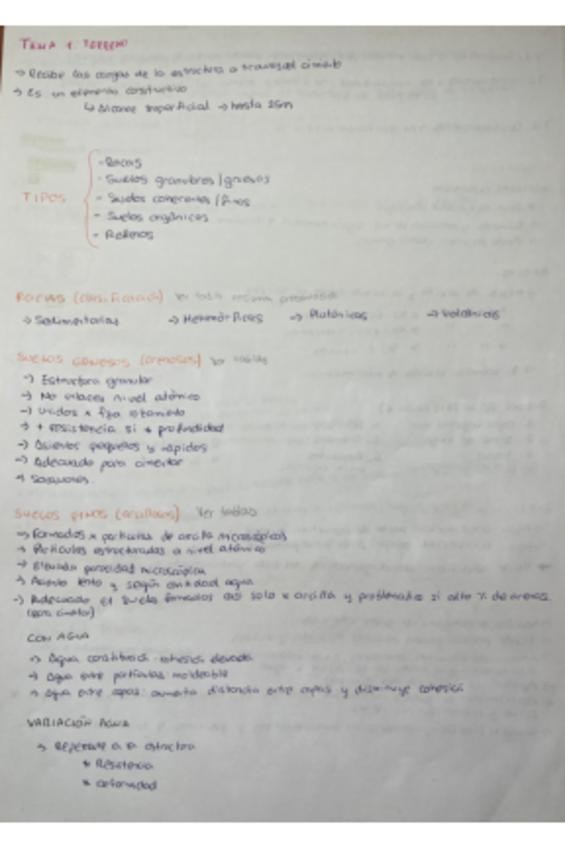 TEMA 1 TERRENO
→ Recibe las cargas de la estructura a traves del cimiento
→ Es un elemento constructivo
↳ Alcance superficial → hasta 25m
TIPOS
- Rocas
- Suelos granulares / gruesos
- Suelos coherentes / finos
- Suelos orgánicos
- Rellenos
ROCAS (clasificación) Ver tabla resumen
→ Sedimentarias → Metamórficas → Plutónicas → Volcánicas
SUELOS GRUESOS (arenosos) Ver tablas
→ Estructura granular
→ No enlaces nivel atómico
→ Unidos x fija
→ + resistencia si + profundidad
→ Asientos pequeños y rápidos
→ Adecuado para cimentar
→
SUELOS FINOS (arcillosos) Ver tablas
→ Formados x partículas de arcilla microscópicas
→ Partículas estructuradas a nivel atómico
→ Elevada porosidad microscópica
→ Asiento lento y según cantidad agua
→ Adecuado el suelo formados casi solo x arcilla y problemático si alto % de arenas
(para cimentar)
CON AGUA
→ Agua constitución: cohesión elevada
→ Agua entre partículas: moldeable
→ Agua entre capas: aumenta distancia entre capas y disminuye cohesión
VARIACIÓN AGUA
→ Repercute a la estructura
* Resistencia
* deformidad